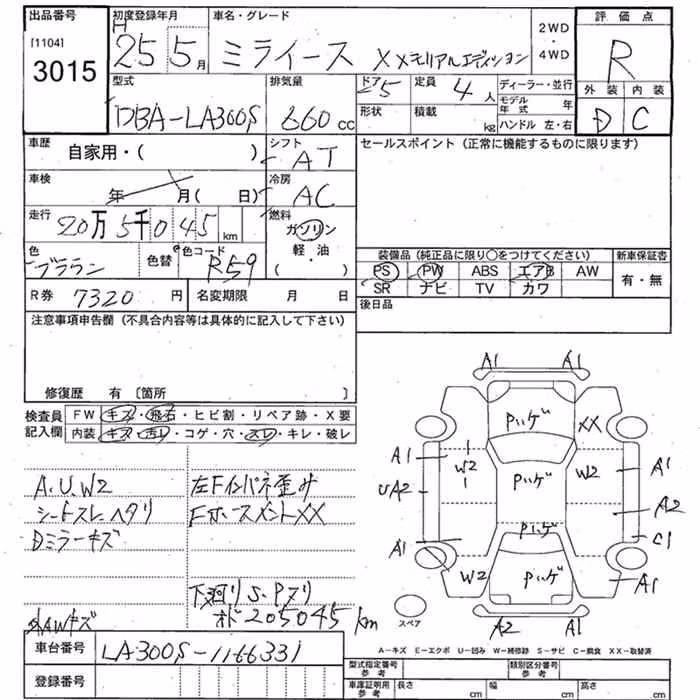 出品番号
[1104]
3015
初度登録年月
H
25 5月
車名・グレード
ミライース XXモリアルエディション
2WD
・
4WD
評価点
R
外装 内装
D C
型式
DBA-LA300S
排気量
660 cc
ドア 5
定員 4 人
形状
積載 kg
ディーラー・並行
モデル年式 年
ハンドル 左・右
車歴
自家用・( )
シフト
AT
車検
年 月( 日)
冷房
AC
走行
20万5千045 km
燃料
ガソリン
軽・油
・
( )
色
ブラウン
色替
色コード
R59
セールスポイント(正常に機能するものに限ります)
装備品(純正品に限り○をつけてください)
PS PW ABS エアB AW
SR ナビ TV カワ
新車保証書
有・無
R券 7320 円
名変期限 月 日
後日品
注意事項申告欄(不具合内容等は具体的に記入して下さい)
修復歴 有〔箇所 〕
検査員
記入欄
FW キズ・飛石・ヒビ割・リペア跡・X要
内装 キズ・汚レ・コゲ・穴・スレ・キレ・破レ
A.U.W2
シートスレヘタリ
Dミラーキズ
AWキズ
左Fインパネ歪み
Fホースメント XX
下廻りS・Pヌリ
オド205045km
A1 A1
Pハゲ
XX
A1
W2
Pハゲ
W2
A1
UA2
A2
Pハゲ
C1
A1
W2
Pハゲ
A1
スペア
A2 A1
A-キズ E-エクボ U-凹み W-補修跡 S-サビ C-腐食 XX-取替済
車台番号
LA300S-1166331
登録番号
型式指定番号
参考
類別区分番号
参考
車庫証明用
参考
長さ cm
幅 cm
高さ cm